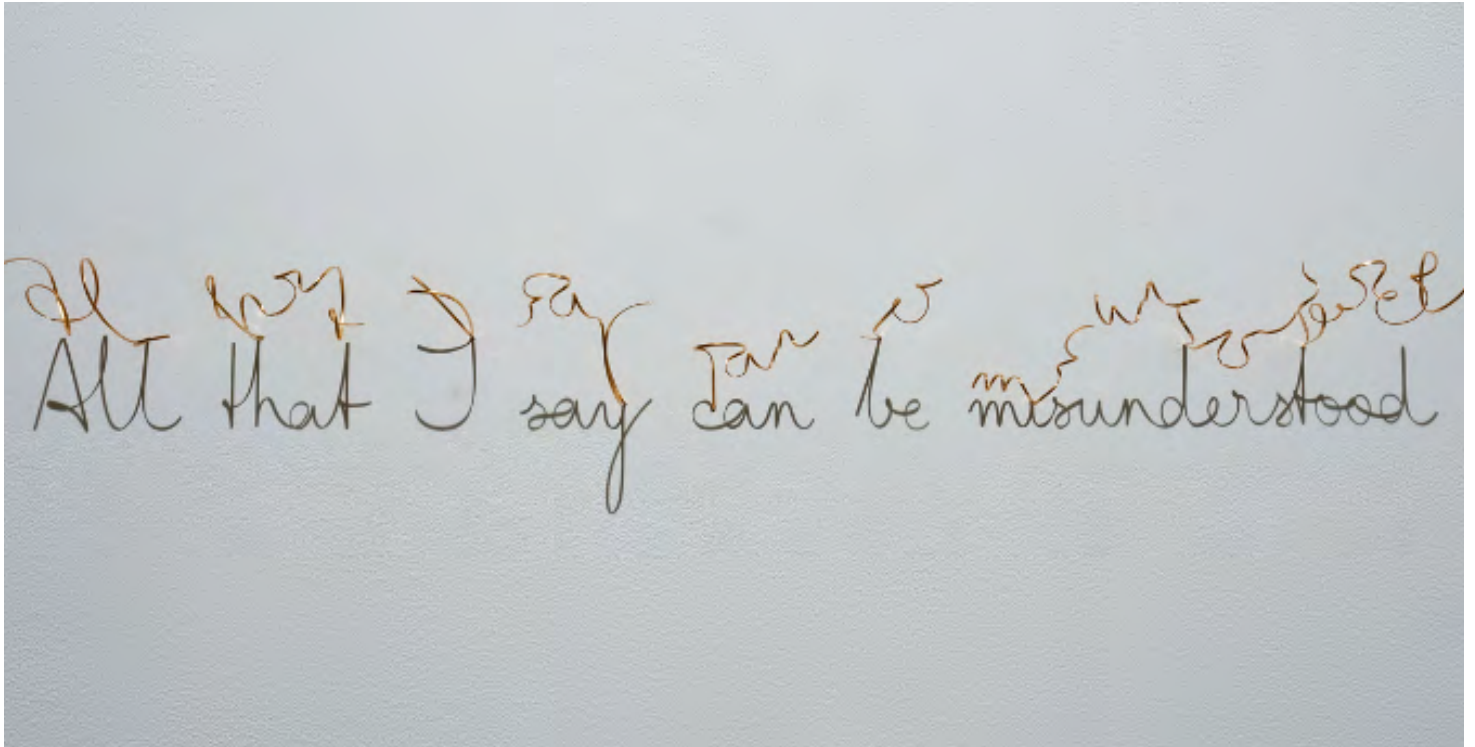 All that I say can be misunderstood